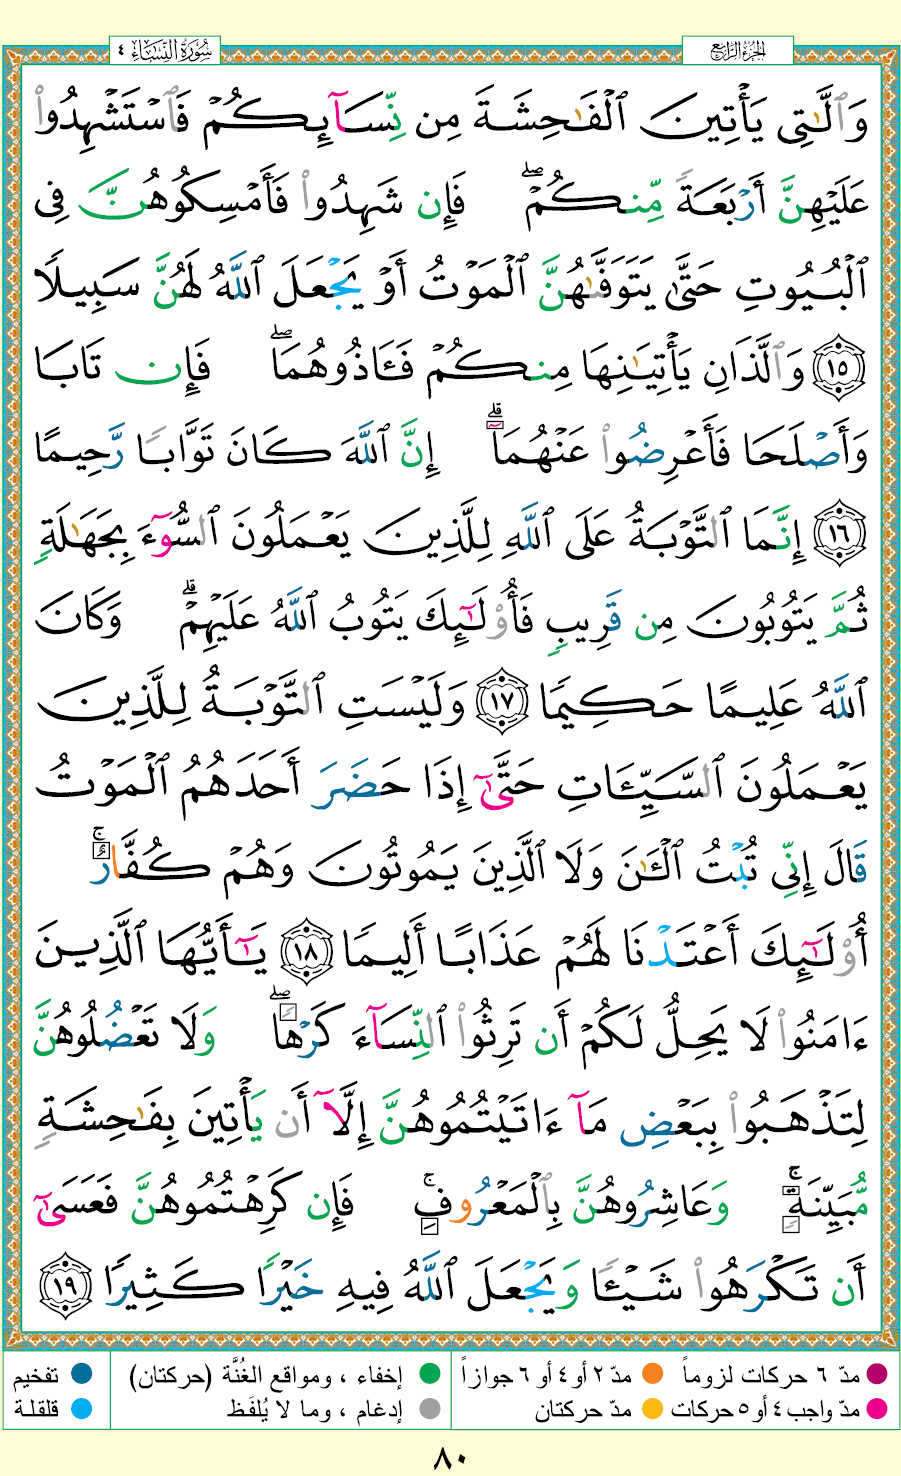 الجزء الرابع
سُورَةُ النِّسَاءِ ٤
وَٱلَّـٰتِى يَأْتِينَ ٱلْفَـٰحِشَةَ مِن نِّسَآئِكُمْ فَٱسْتَشْهِدُوا۟
عَلَيْهِنَّ أَرْبَعَةً مِّنكُمْ ۖ فَإِن شَهِدُوا۟ فَأَمْسِكُوهُنَّ فِى
ٱلْبُيُوتِ حَتَّىٰ يَتَوَفَّىٰهُنَّ ٱلْمَوْتُ أَوْ يَجْعَلَ ٱللَّهُ لَهُنَّ سَبِيلًا
١٥ وَٱلَّذَانِ يَأْتِيَـٰنِهَا مِنكُمْ فَـَٔاذُوهُمَا ۖ فَإِن تَابَا
وَأَصْلَحَا فَأَعْرِضُوا۟ عَنْهُمَآ ۗ إِنَّ ٱللَّهَ كَانَ تَوَّابًا رَّحِيمًا
١٦ إِنَّمَا ٱلتَّوْبَةُ عَلَى ٱللَّهِ لِلَّذِينَ يَعْمَلُونَ ٱلسُّوٓءَ بِجَهَـٰلَةٍ
ثُمَّ يَتُوبُونَ مِن قَرِيبٍ فَأُو۟لَـٰٓئِكَ يَتُوبُ ٱللَّهُ عَلَيْهِمْ ۗ وَكَانَ
ٱللَّهُ عَلِيمًا حَكِيمًا ١٧ وَلَيْسَتِ ٱلتَّوْبَةُ لِلَّذِينَ
يَعْمَلُونَ ٱلسَّيِّـَٔاتِ حَتَّىٰٓ إِذَا حَضَرَ أَحَدَهُمُ ٱلْمَوْتُ
قَالَ إِنِّى تُبْتُ ٱلْـَٔـٰنَ وَلَا ٱلَّذِينَ يَمُوتُونَ وَهُمْ كُفَّارٌ ۚ
أُو۟لَـٰٓئِكَ أَعْتَدْنَا لَهُمْ عَذَابًا أَلِيمًا ١٨ يَـٰٓأَيُّهَا ٱلَّذِينَ
ءَامَنُوا۟ لَا يَحِلُّ لَكُمْ أَن تَرِثُوا۟ ٱلنِّسَآءَ كَرْهًا ۖ وَلَا تَعْضُلُوهُنَّ
لِتَذْهَبُوا۟ بِبَعْضِ مَآ ءَاتَيْتُمُوهُنَّ إِلَّآ أَن يَأْتِينَ بِفَـٰحِشَةٍ
مُّبَيِّنَةٍ ۚ وَعَاشِرُوهُنَّ بِٱلْمَعْرُوفِ ۚ فَإِن كَرِهْتُمُوهُنَّ فَعَسَىٰٓ
أَن تَكْرَهُوا۟ شَيْـًٔا وَيَجْعَلَ ٱللَّهُ فِيهِ خَيْرًا كَثِيرًا ١٩
مدّ ٦ حركات لزوماً مدّ ٢ أو ٤ أو ٦ جوازاً إخفاء ، ومواقع الغُنَّة (حركتان) تفخيم
مدّ واجب ٤ أو ٥ حركات مدّ حركتان إدغام ، وما لا يُلفَظ قلقلة
٨٠